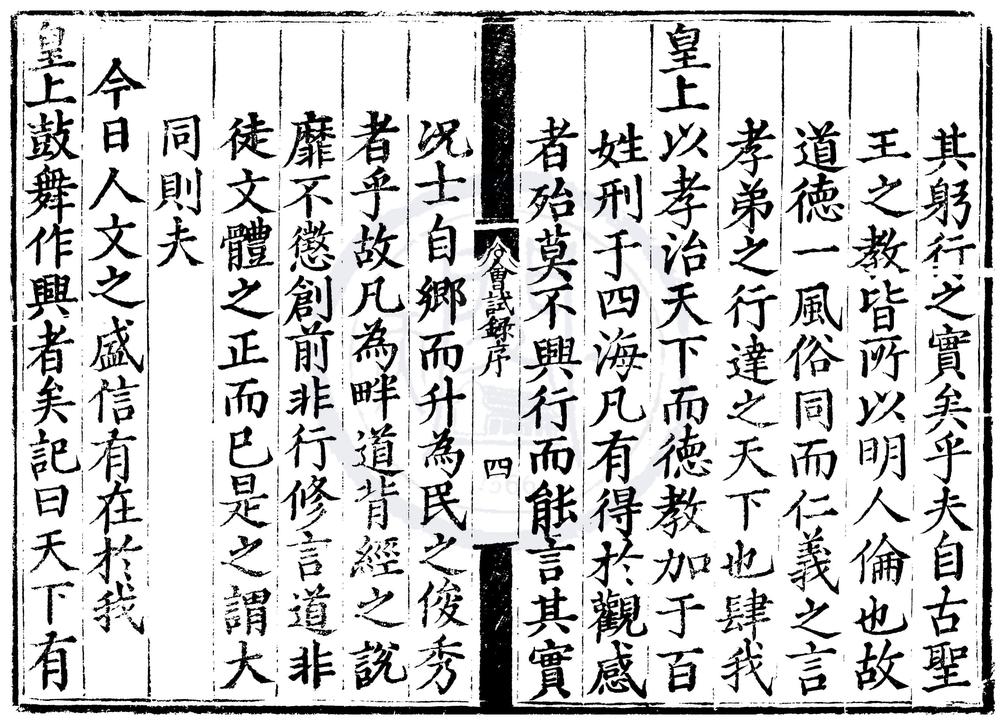 其躬行之實矣乎夫自古聖
王之教皆所以明人倫也故
道德一風俗同而仁義之言
孝弟之行達之天下也肆我
皇上以孝治天下而德教加于百
姓刑于四海凡有得於觀感
者殆莫不興行而能言其實
會試錄序
四
况士自鄉而升為民之俊秀
者乎故凡為畔道背經之說
靡不懲創前非行修言道非
徒文體之正而已是之謂大
同則夫
今日人文之盛信有在於我
皇上鼓舞作興者矣記曰天下有